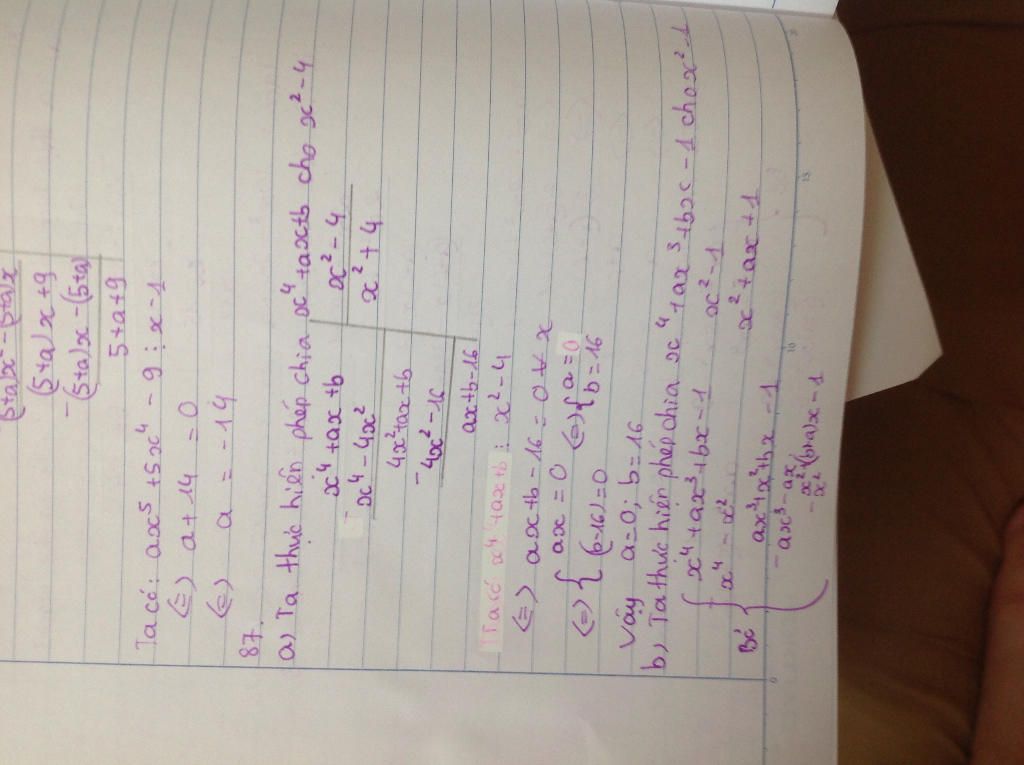 (5+a)x² - (5+a)x
(5+a)x + 9
- (5+a)x - (5+a)
5+a+9
Ta có: ax⁵ + 5x⁴ - 9 ⋮ x - 1
(=) a + 14 = 0
(=) a = -14
87.
a) Ta thực hiện phép chia x⁴ + ax + b cho x² - 4
x⁴ + ax + b | x² - 4
- x⁴ - 4x² | x² + 4
4x² + ax + b
- 4x² - 16
ax + b - 16
Ta có x⁴ + ax + b ⋮ x² - 4
(=) ax + b - 16 = 0 ∀ x
(=) { ax = 0 (=) { a = 0
(b - 16) = 0 b = 16
Vậy a = 0; b = 16
b) Ta thực hiện phép chia x⁴ + ax³ + bx - 1 cho x² - 1
x⁴ + ax³ + bx - 1 x² - 1
- x⁴ - x² x² + ax + 1
Bỏ ax³ + x² + bx - 1
- ax³ - ax
x² + (b+a)x - 1
- x²